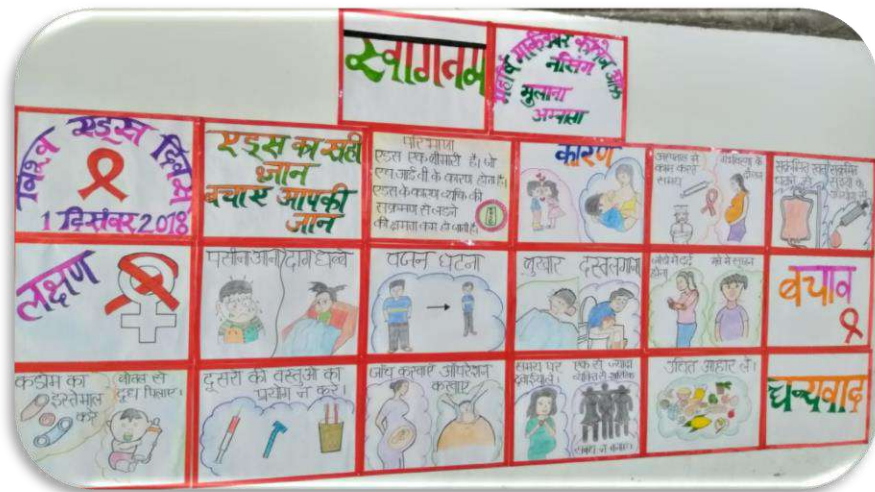 स्वागतम
महर्षि मार्कंडेश्वर कॉलेज ऑफ
नर्सिंग
मुलाना
अम्बाला
विश्व एड्स दिवस
1 दिसंबर 2018
एड्स का सही
ज्ञान
बचाए आपकी
जान
परिभाषा
एड्स एक बीमारी है। जो
एच आई वी के कारण होता है।
एड्स के कारण व्यक्ति की
संक्रमण से लडने
की क्षमता कम हो जाती है।
कारण
अस्पताल में
काम करते
समय
गर्भावस्था के
दौरान
संक्रमित रक्त
लक्षण
पसीना आना
दाग धब्बे
वजन घटना
बुखार
दस्त लगना
होना
गले में सूजन
बचाव
कंडोम का
इस्तेमाल
करे
बोतल से
दूध पिलाए।
दूसरों की वस्तुओं का
प्रयोग न करें।
जाँच करवाए
ऑपरेशन
करवाए
समय पर
दवाई ले।
एक से ज्यादा
उचित आहार लें।
धन्यवाद